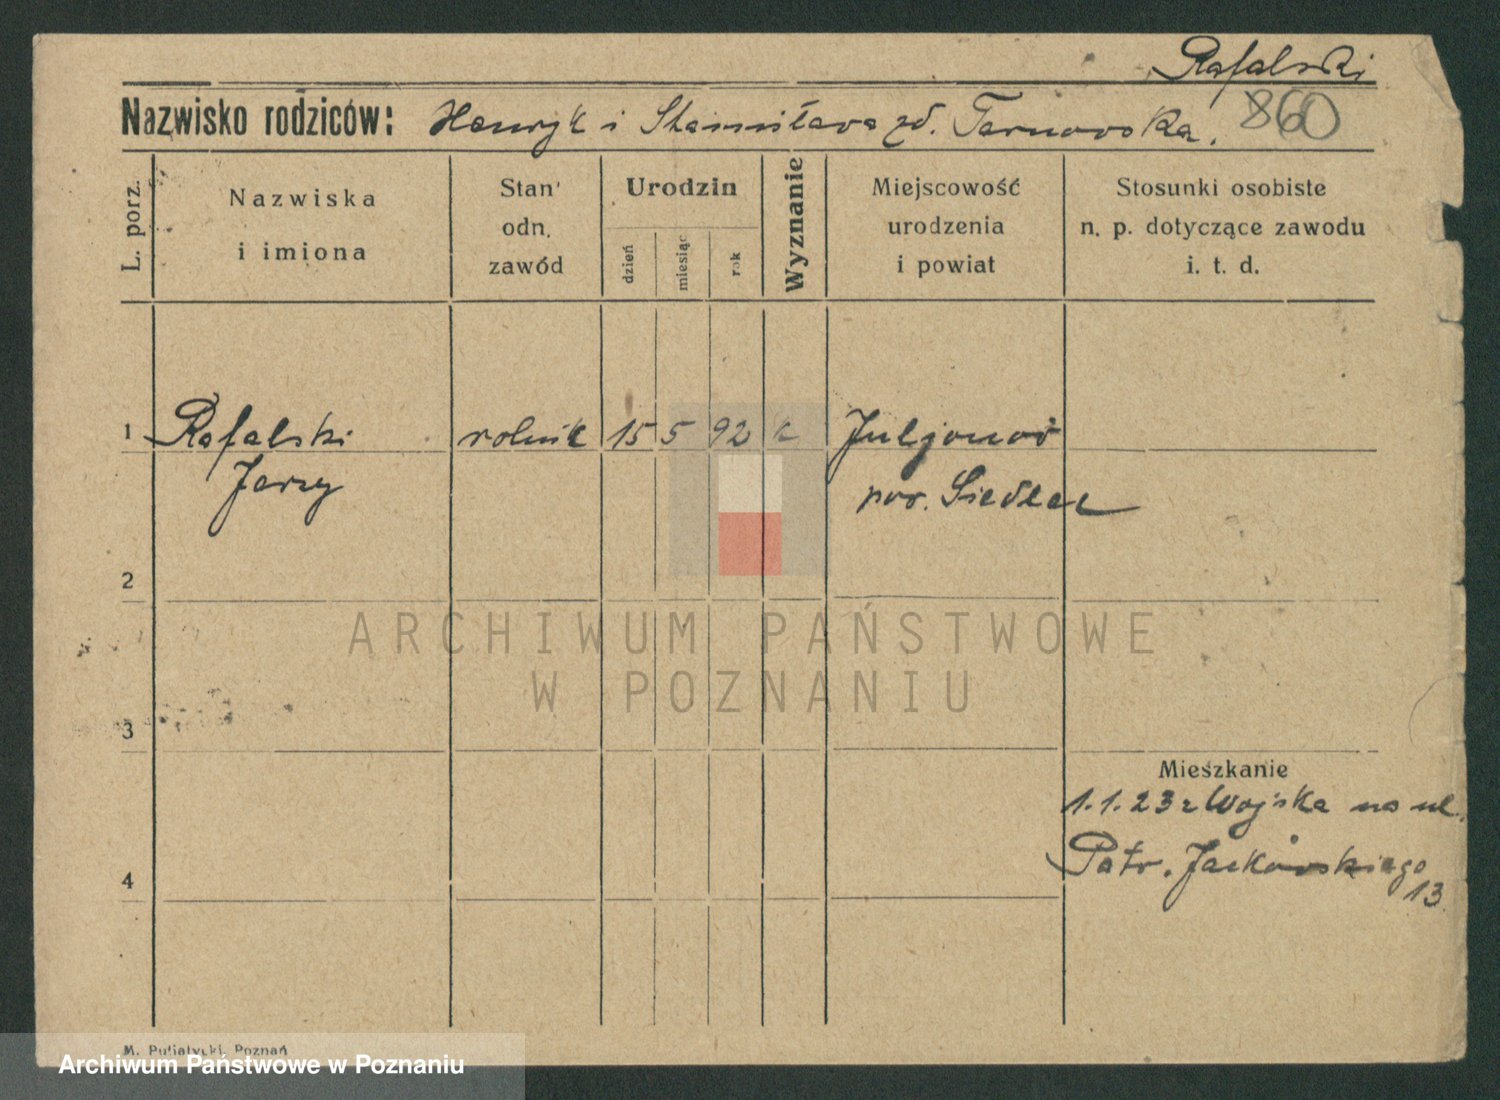 Rafalski
Nazwisko rodziców: Henryk i Stanisława zd. Tarnowska.
860
L. porz.
Nazwiska
i imiona
Stan
odn.
zawód
Urodzin
dzień
miesiąc
rok
Wyznanie
Miejscowość
urodzenia
i powiat
Stosunki osobiste
n. p. dotyczące zawodu
i. t. d.
1 Rafalski rolnik 15 5 92 k Juljanów
Jerzy pow. Siedlec
2
ARCHIWUM PAŃSTWOWE
W POZNANIU
3
Mieszkanie
1.1.23 z Wojska na ul.
Patr. Jackowskiego
13
4
M. Putiatycki, Poznań
Archiwum Państwowe w Poznaniu